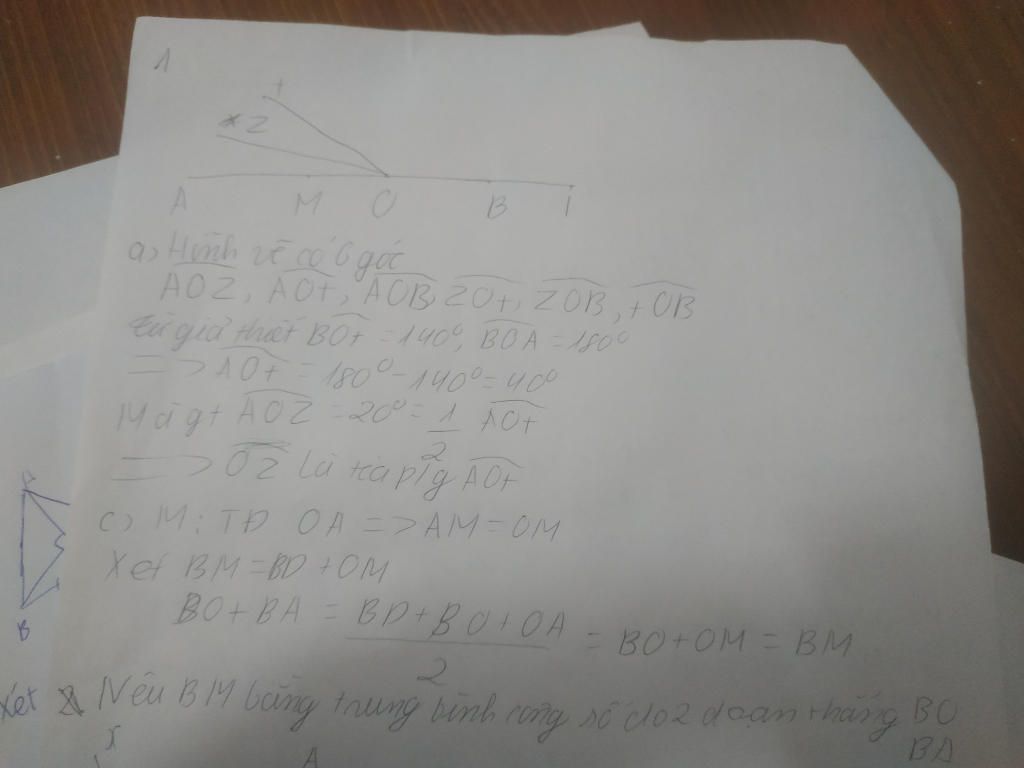 1
t
z
A M O B I
a) Hình vẽ có 6 góc
AOZ, AOt, AOB, ZOt, ZOB, tOB
từ giả thiết BOt = 140°, BOA = 180°
=> AOt = 180° - 140° = 40°
Mà gt AOZ = 20° = 1/2 AOt
=> OZ là tia p/g AOt
c) M: TĐ OA => AM = OM
Xét BM = BO + OM
BO + BA = BO + BO + OA / 2 = BO + OM = BM
Xét
Nếu BM bằng trung bình cộng số đo 2 đoạn thẳng BO
BA
A
B